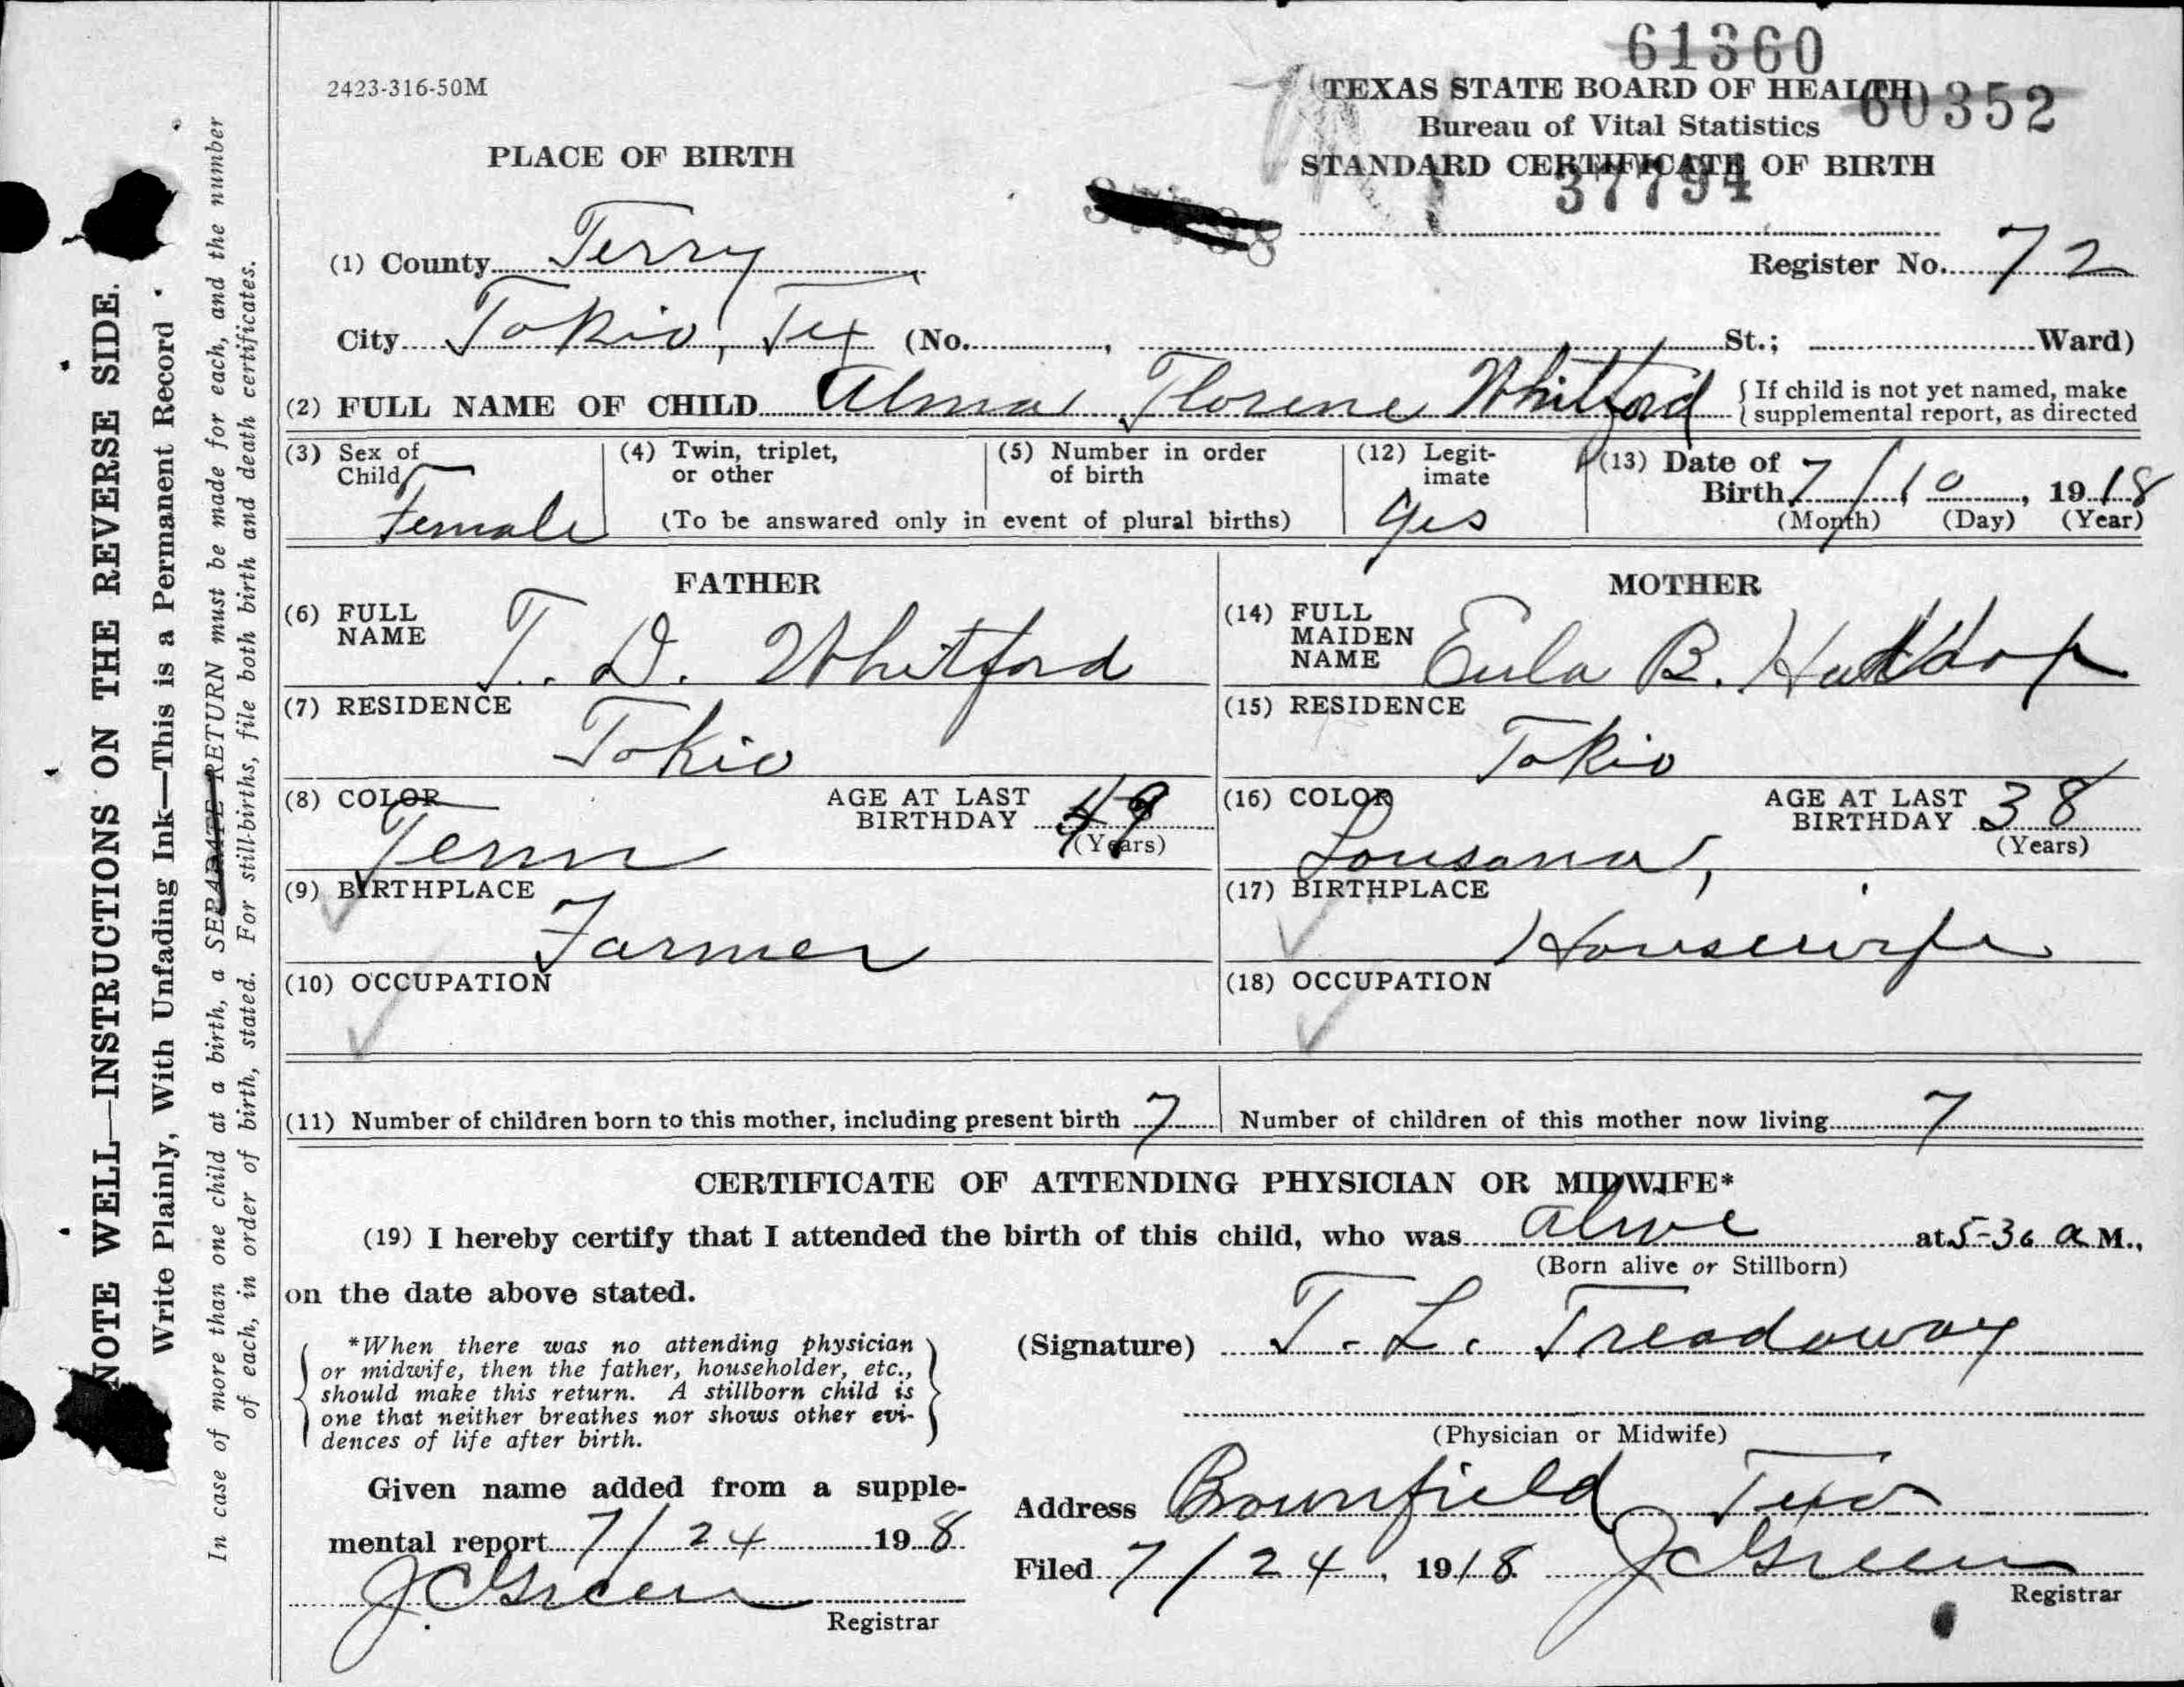 61360
2423-316-50M
TEXAS STATE BOARD OF HEALTH
60352
Bureau of Vital Statistics
PLACE OF BIRTH
STANDARD CERTIFICATE OF BIRTH
37794
(1) County Terry
Register No. 72
City Tokio, Tex (No. , St.; Ward)
(2) FULL NAME OF CHILD Alma Florene Whitford { If child is not yet named, make
supplemental report, as directed
(3) Sex of Child Female
(4) Twin, triplet, or other
(5) Number in order of birth
(To be answared only in event of plural births)
(12) Legit-
imate
Yes
(13) Date of
Birth 7/10, 1918
(Month) (Day) (Year)
FATHER
(6) FULL
NAME T. D. Whitford
(7) RESIDENCE
Tokio
(8) COLOR
AGE AT LAST
BIRTHDAY 49
(Years)
Tenn
(9) BIRTHPLACE
Farmer
(10) OCCUPATION
MOTHER
(14) FULL
MAIDEN
NAME Eula B.
(15) RESIDENCE
Tokio
(16) COLOR
AGE AT LAST
BIRTHDAY 38
(Years)
Lousana,
(17) BIRTHPLACE
Housewife
(18) OCCUPATION
(11) Number of children born to this mother, including present birth 7
Number of children of this mother now living 7
CERTIFICATE OF ATTENDING PHYSICIAN OR MIDWIFE*
(19) I hereby certify that I attended the birth of this child, who was alive at 5-30 a M.,
(Born alive or Stillborn)
on the date above stated.
*When there was no attending physician
or midwife, then the father, householder, etc.,
should make this return. A stillborn child is
one that neither breathes nor shows other evi-
dences of life after birth.
(Signature) T. L. Treadaway
(Physician or Midwife)
Given name added from a supple-
mental report 7/24 19 8
J C Green
Registrar
Address Brownfield Texas
Filed 7/24, 1918 J C Green
Registrar
NOTE WELL—INSTRUCTIONS ON THE REVERSE SIDE.
Write Plainly, With Unfading Ink—This is a Permanent Record
In case of more than one child at a birth, a SEPARATE RETURN must be made for each, and the number
of each, in order of birth, stated. For still-births, file both birth and death certificates.